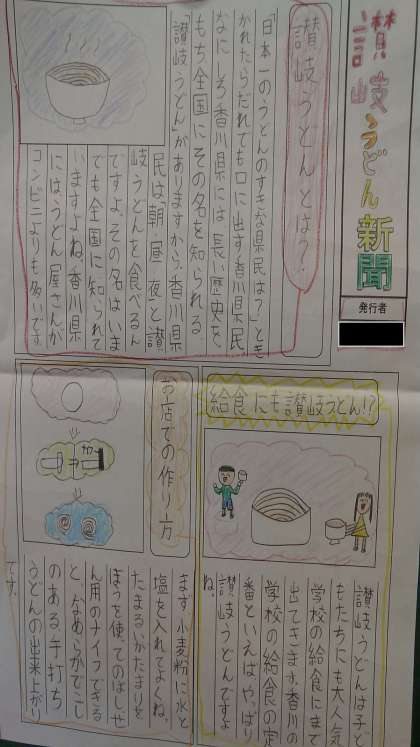 讃岐うどん新聞
発行者
讃岐うどんとは？
「日本一のうどんのすきな県民は？」とき
かれたらだれでも口に出す香川県民。
なにしろ香川県には長い歴史を
もち全国にその名を知られる
「讃岐うどん」がありますから。香川県
民は「朝・昼・夜」と讃
岐うどんを食べるん
ですよ。その名はいま
でも全国に知られて
いますよね。香川県
にはうどん屋さんが
コンビニよりも多いです。
給食にも讃岐うどん!?
讃岐うどんは子ど
もたちにも大人気
学校の給食にまで
出てきます。香川の
学校の給食の定
番といえばやっぱり
讃岐うどんですよ
ね。
お店での作り方
まず小麦粉に水と
塩を入れてよくね、
たまるいかたまりを
ぼうを使てのばしせ
ん用のナイフできる
と、なめらかでこし
のある手打ち
うどんの出来上がり
です。